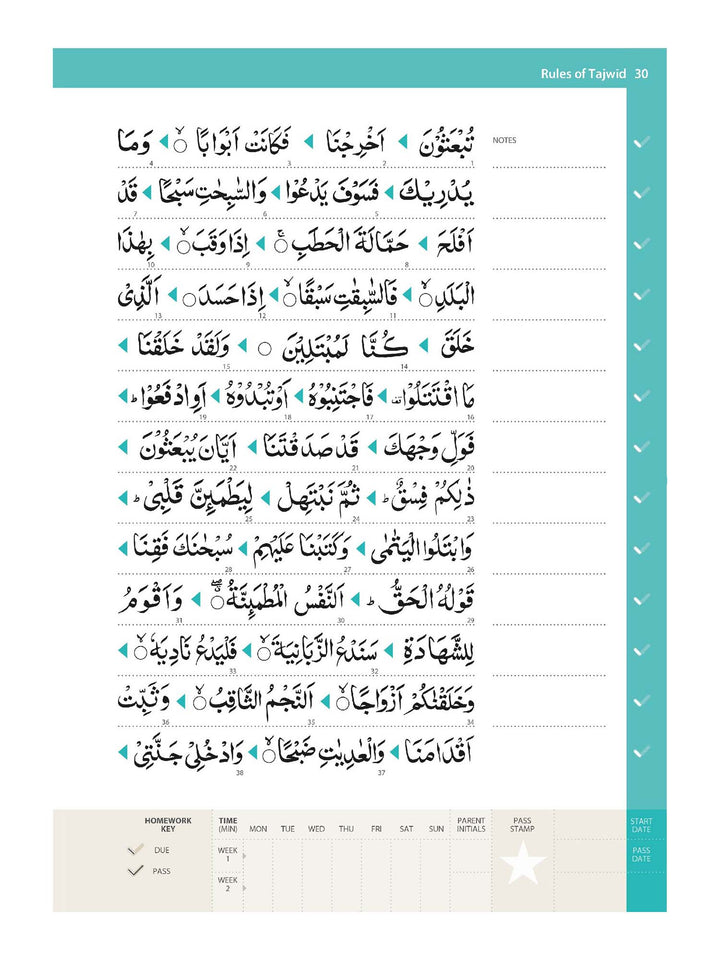 Rules of Tajwid 30
تُبْعَثُوْنَ ◀ اَخْرِجْنَا ◀ فَكَانَتْ اَبْوَابًا ۙ ◀ وَمَا
NOTES
1 2 3 4
يُدْرِيْكَ ◀ فَسَوْفَ يَدْعُوْا ◀ وَالسّٰبِحٰتِ سَبْحًا ◀ قَدْ
5 6 7
اَفْلَحَ ◀ حَمَّالَةَ الْحَطَبِ ۚ ◀ اِذَا وَقَبَ ۙ ◀ بِهٰذَا
8 9 10
الْبَلَدِ ۙ ◀ فَالسّٰبِقٰتِ سَبْقًا ۙ ◀ اِذَا حَسَدَ ○ ◀ الَّذِيْ
11 12 13
خَلَقَ ◀ كُنَّا لَمُبْتَلِيْنَ ○ ◀ وَلَقَدْ خَلَقْنَا ◀
14 15
مَا اقْتَتَلُوْا ◀ فَاجْتَنِبُوْهُ ◀ اَوْتُبْدُوْهُ ◀ اَوِادْفَعُوْا ؕ ◀
16 17 18 19
فَوَلِّ وَجْهَكَ ◀ قَدْ صَدَقْتَنَا ◀ اَيَّانَ يُبْعَثُوْنَ ◀
20 21 22
ذٰلِكُمْ فِسْقٌ ؕ ◀ ثُمَّ نَبْتَهِلْ ◀ لِيَطْمَئِنَّ قَلْبِيْ ؕ ◀
23 24 25
وَابْتَلُوا الْيَتٰمٰى ◀ وَكَتَبْنَا عَلَيْهِمْ ◀ سُبْحٰنَكَ فَقِنَا ◀
26 27 28
قَوْلُهُ الْحَقُّ ؕ ◀ اَلنَّفْسُ الْمُطْمَئِنَّةُ ۖ ◀ وَاَقْوَمُ
29 30 31
لِلشَّهَادَةِ ◀ سَنَدْعُ الزَّبَانِيَةَ ۙ ◀ فَلْيَدْعُ نَادِيَهٗ ۙ ◀
32 33
وَخَلَقْنٰكُمْ اَزْوَاجًا ۙ ◀ اَلنَّجْمُ الثَّاقِبُ ۙ ◀ وَثَبِّتْ
34 35 36
اَقْدَامَنَا ◀ وَالْعٰدِيٰتِ ضَبْحًا ۙ ◀ وَادْخُلِيْ جَنَّتِيْ ◀
37 38
HOMEWORK KEY
DUE
PASS
TIME (MIN) MON TUE WED THU FRI SAT SUN PARENT INITIALS PASS STAMP START DATE
WEEK 1
PASS DATE
WEEK 2